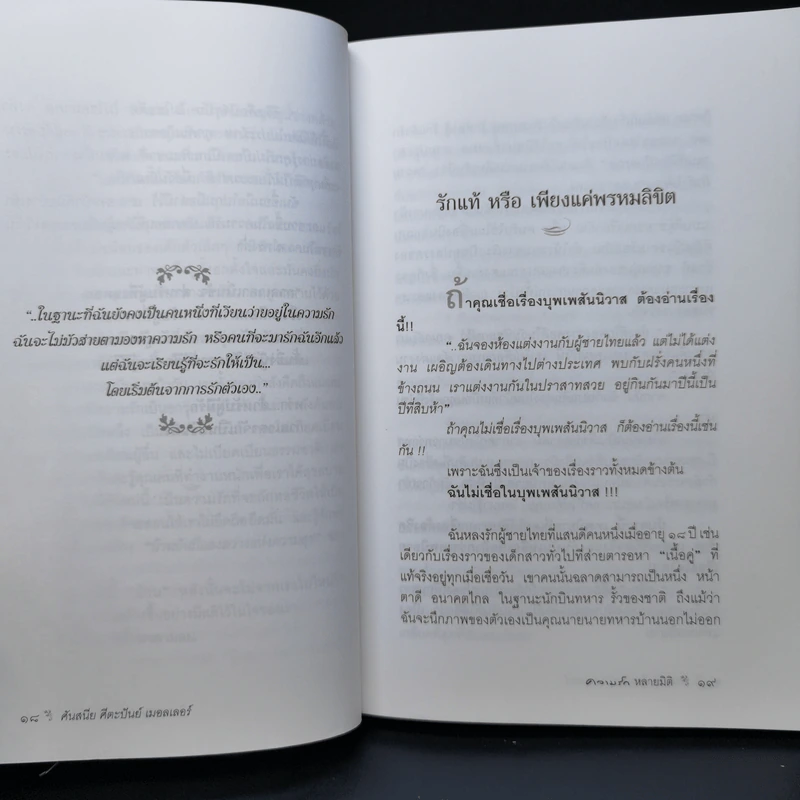 “..ในฐานะที่ฉันยังคงเป็นคนหนึ่งที่เวียนว่ายอยู่ในความรัก
ฉันจะไม่มัวส่ายตามองหาความรัก หรือคนที่จะมารักฉันอีกแล้ว
แต่ฉันจะเรียนรู้ที่จะรักให้เป็น...
โดยเริ่มต้นจากการรักตัวเอง..”
๑๘ ศันสนีย ศีตะปันย์ เมอลเลอร์
รักแท้ หรือ เพียงแค่พรหมลิขิต
ถ้าคุณเชื่อเรื่องบุพเพสันนิวาส ต้องอ่านเรื่อง
นี้!!
“..ฉันจองห้องแต่งงานกับผู้ชายไทยแล้ว แต่ไม่ได้แต่ง
งาน เผอิญต้องเดินทางไปต่างประเทศ พบกับฝรั่งคนหนึ่งที่
ข้างถนน เราแต่งงานกันในปราสาทสวย อยู่กินกันมาปีนี้เป็น
ปีที่สิบห้า”
ถ้าคุณไม่เชื่อเรื่องบุพเพสันนิวาส ก็ต้องอ่านเรื่องนี้เช่น
กัน !!
เพราะฉันซึ่งเป็นเจ้าของเรื่องราวทั้งหมดข้างต้น
ฉันไม่เชื่อในบุพเพสันนิวาส !!!
ฉันหลงรักผู้ชายไทยที่แสนดีคนหนึ่งเมื่ออายุ ๑๘ ปี เช่น
เดียวกับเรื่องราวของเด็กสาวทั่วไปที่ส่ายตารอหา “เนื้อคู่” ที่
แท้จริงอยู่ทุกเมื่อเชื่อวัน เขาคนนั้นฉลาดสามารถเป็นหนึ่ง หน้า
ตาดี อนาคตไกล ในฐานะนักบินทหาร รั้วของชาติ ถึงแม้ว่า
ฉันจะนึกภาพของตัวเองเป็นคุณนายนายทหารบ้านนอกไม่ออก
ความรัก หลายมิติ ๑๙